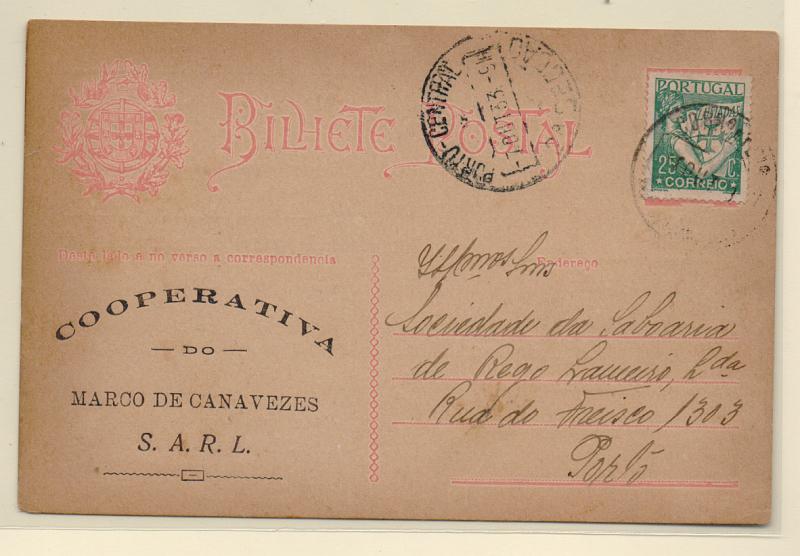 BILHETE POSTAL
PORTO-CENTRAL
PORTUGAL
25 C.
CORREIO
Deste lado e no verso a correspondencia
Endereço
COOPERATIVA
— DO —
MARCO DE CANAVEZES
S. A. R. L.
Sociedade da Saboaria
de Rego Lameiro, Lda
Rua do Freixo 1303
Porto